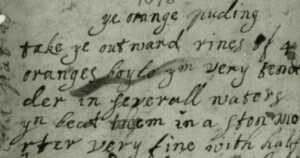 ye orange puding
take ye outward rines of 4
oranges boyle ym very tend
der in severall waters
yn beat them in a ston mo
rter very fine with half